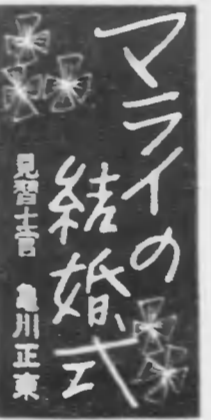 マライの
結婚式
見習士官 亀川正東